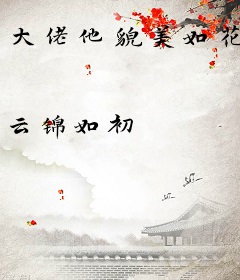 大佬他貌美如花
云锦如初